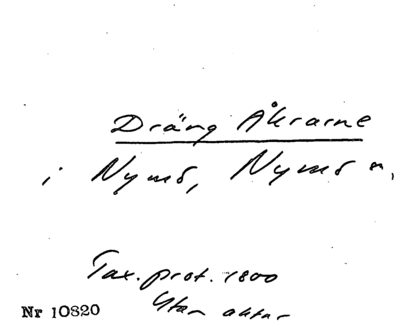 Dräng Åkrarne
i Nymö, Nymö s.
Tax. prot. 1800
Utan aktar
Nr 10820